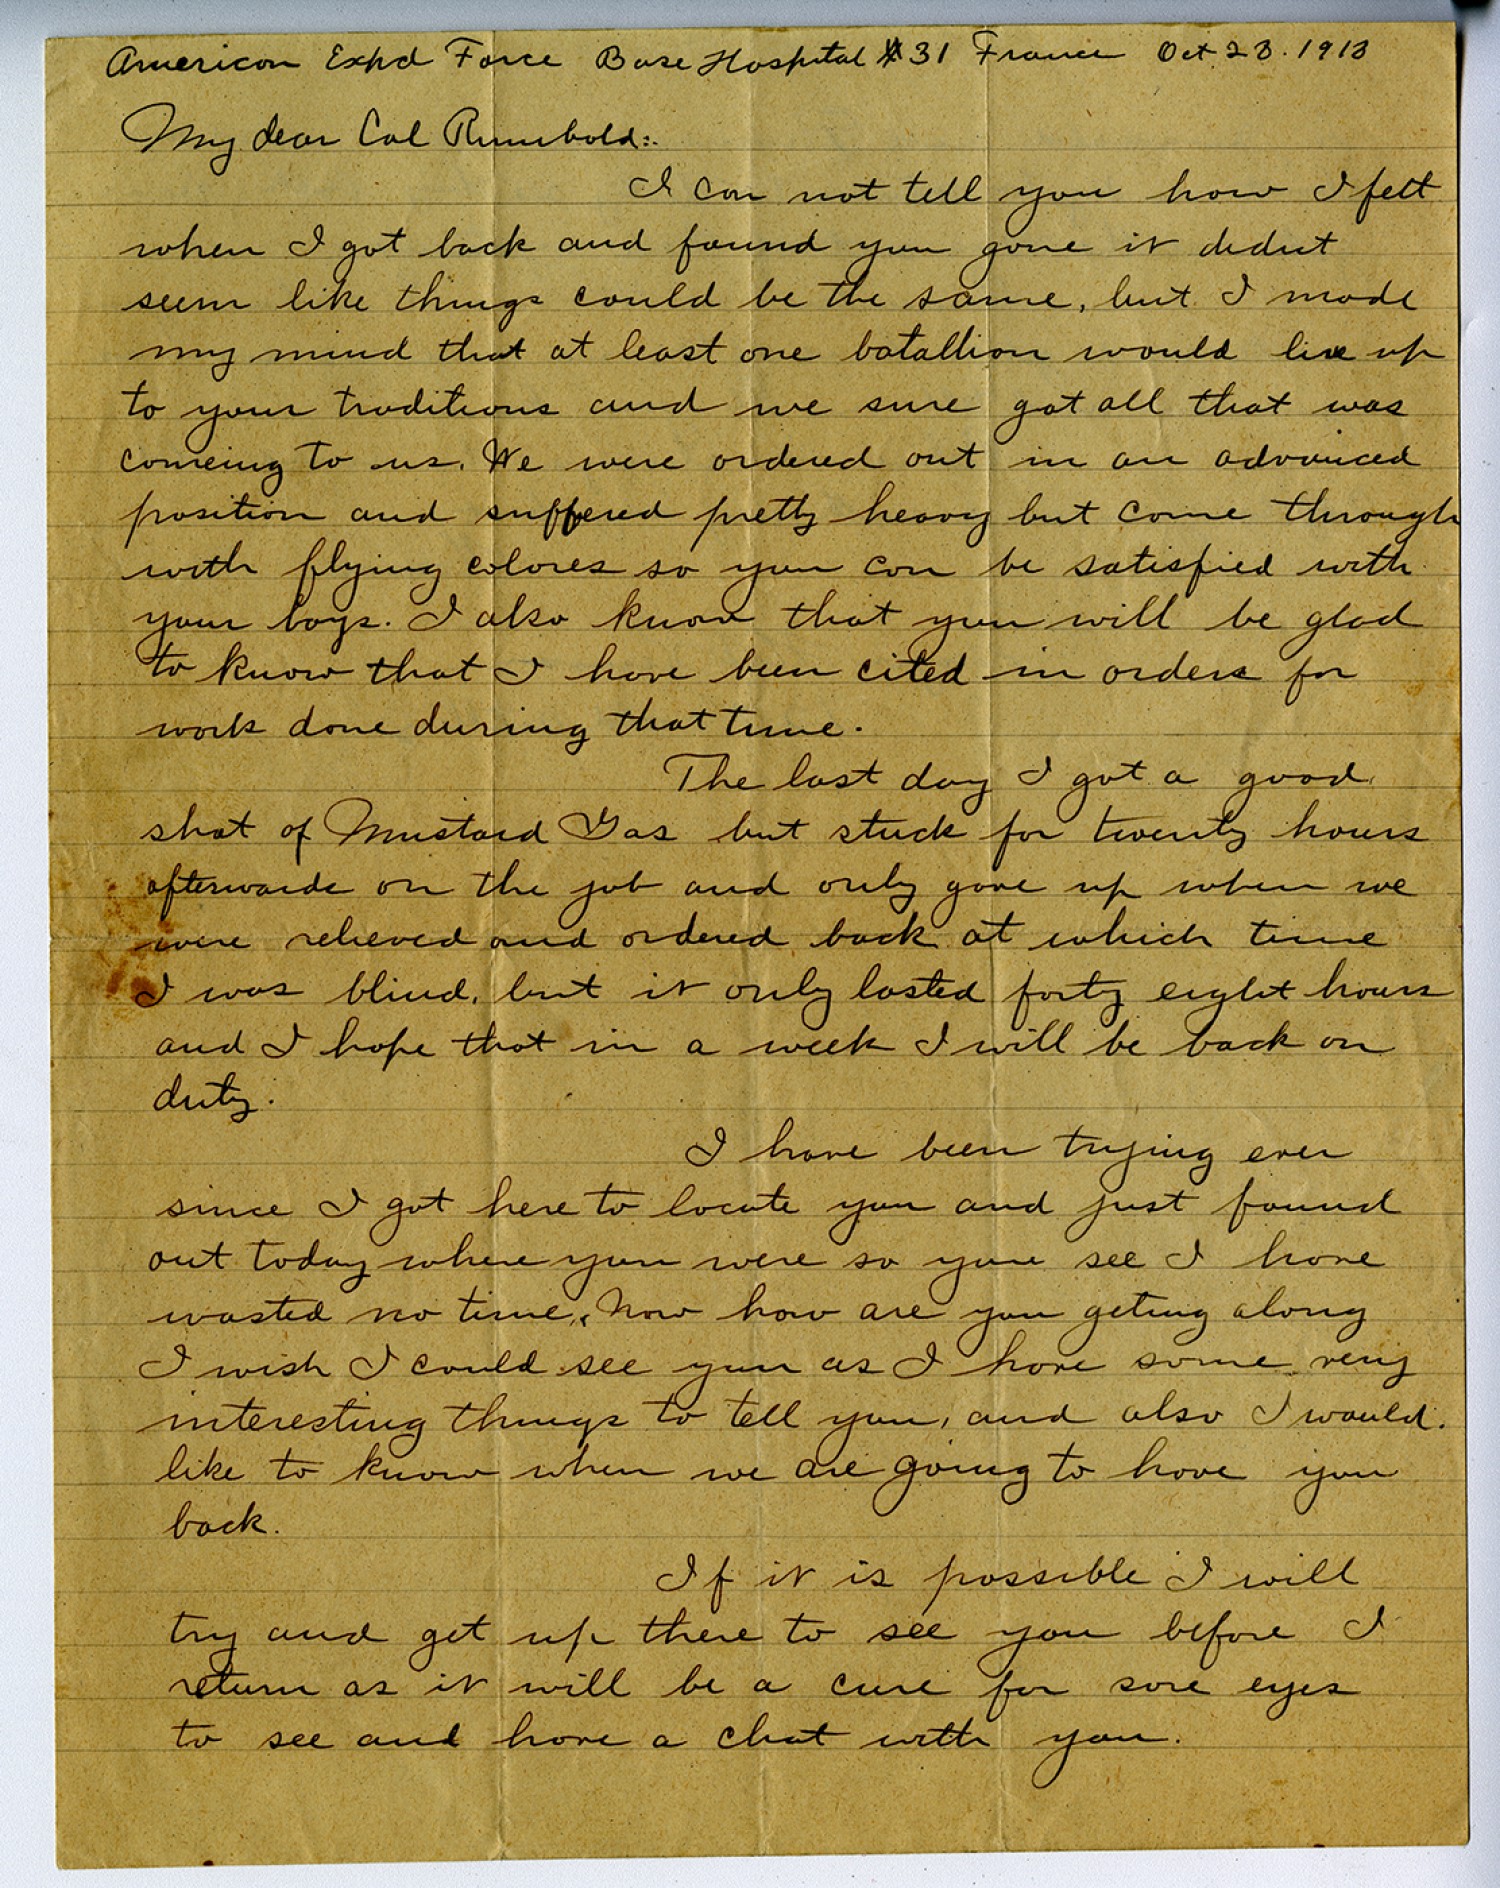 American Expd Force Base Hospital #31 France Oct 23. 1918
My dear Col Rumbold:.
I can not tell you how I felt
when I got back and found you gone it didnt
seem like things could be the same, but I made
my mind that at least one batallion would live up
to your traditions and we sure got all that was
comeing to us. We were ordered out in an advanced
position and suffered pretty heavy but come through
with flying colores so you can be satisfied with
your boys. I also know that you will be glad
to know that I have been cited in orders for
work done during that time.
The last day I got a good
shot of Mustard Gas but stuck for twenty hours
afterwards on the job and only gave up when we
were relieved and ordered back at which time
I was blind, but it only lasted forty eight hours
and I hope that in a week I will be back on
duty.
I have been trying ever
since I got here to locate you and just found
out today where you were so you see I have
wasted no time, Now how are you geting along
I wish I could see you as I have some very
interesting things to tell you, and also I would
like to know when we are going to have you
back.
If it is possible I will
try and get up there to see you before I
return as it will be a cure for sore eyes
to see and have a chat with you.